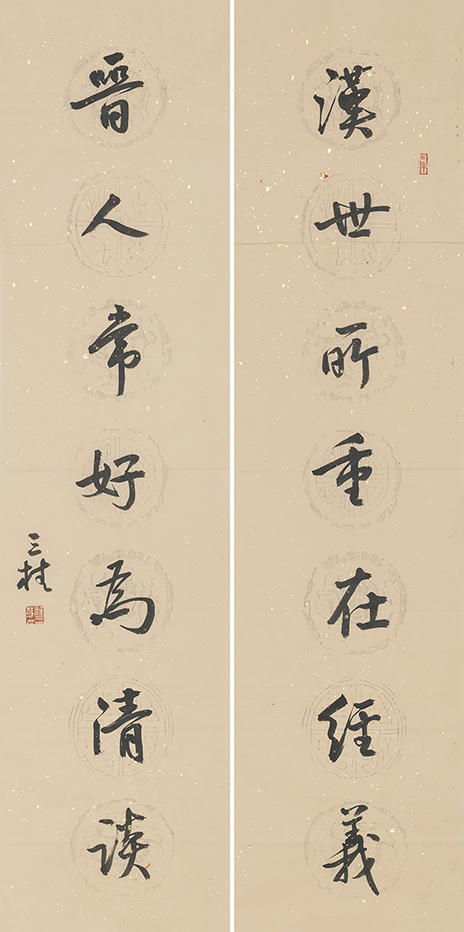 漢世所重在經義
晉人常好為清談
三桂